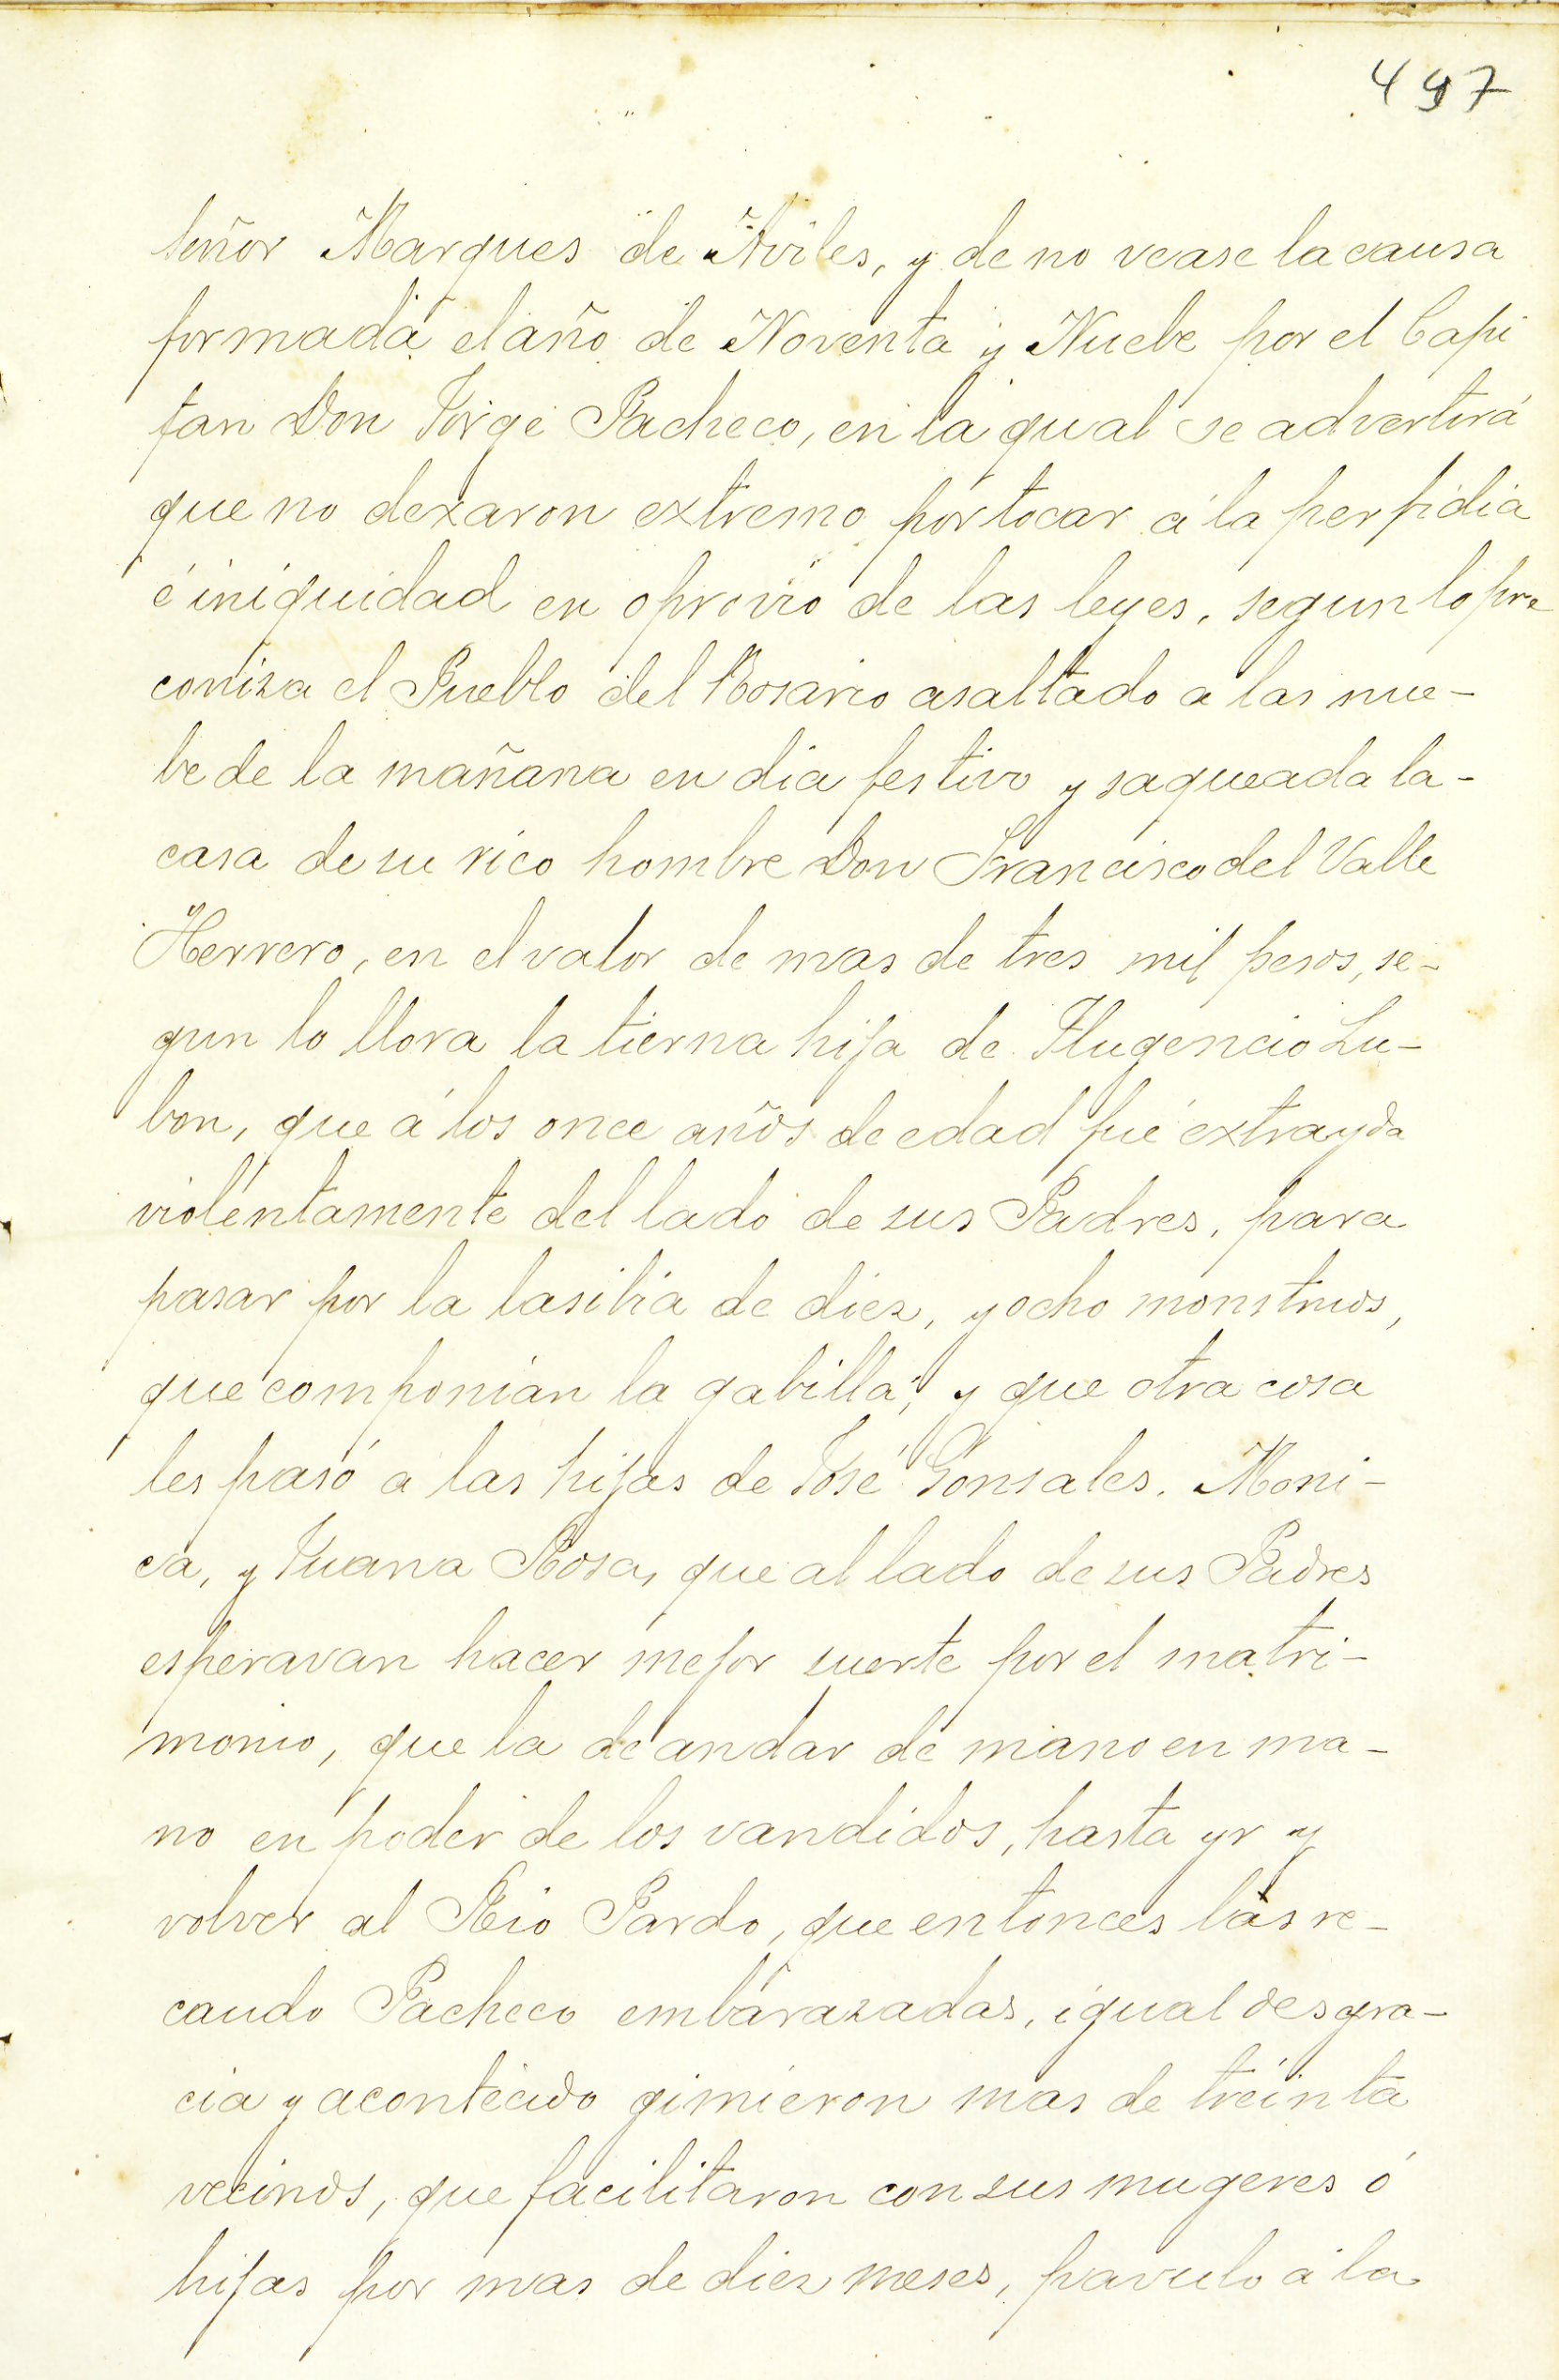 497
señor Marques de Aviles, y de no vease la causa
formada el año de Noventa y Nuebe por el Capi
tan Don Jorge Pacheco, en la qual se advertirá
que no dexaron extremo por tocar á la perfidia
é iniquidad en oprovio de las leyes, segun lo pre
coniza el Pueblo del Rosario asaltado a las nue-
be de la mañana en dia festivo y saqueada la-
casa de su rico hombre Don Francisco del Valle
Herrero, en el valor de mas de tres mil pesos, se-
gun lo llora la tierna hija de Flugencio Lu-
bon, que á los once años de edad fué extrayda
violentamente del lado de sus Padres, para
pasar por la lasibia de diez, y ocho monstruos,
que componian la gabilla; y que otra cosa
les pasó a las hijas de José Gonsales. Moni-
ca, y Juana Rosa, que al lado de sus Padres
esperavan hacer mejor suerte por el matri-
monio, que la de andar de mano en ma-
no en poder de los vandidos, hasta yr y
volver al Rio Pardo, que entonces las re-
caudo Pacheco embarazadas, igual desgra-
cia y acontecido gimieron mas de treinta
vecinos, que facilitaron con sus mugeres ó
hijas por mas de diez meses, pavulo á la